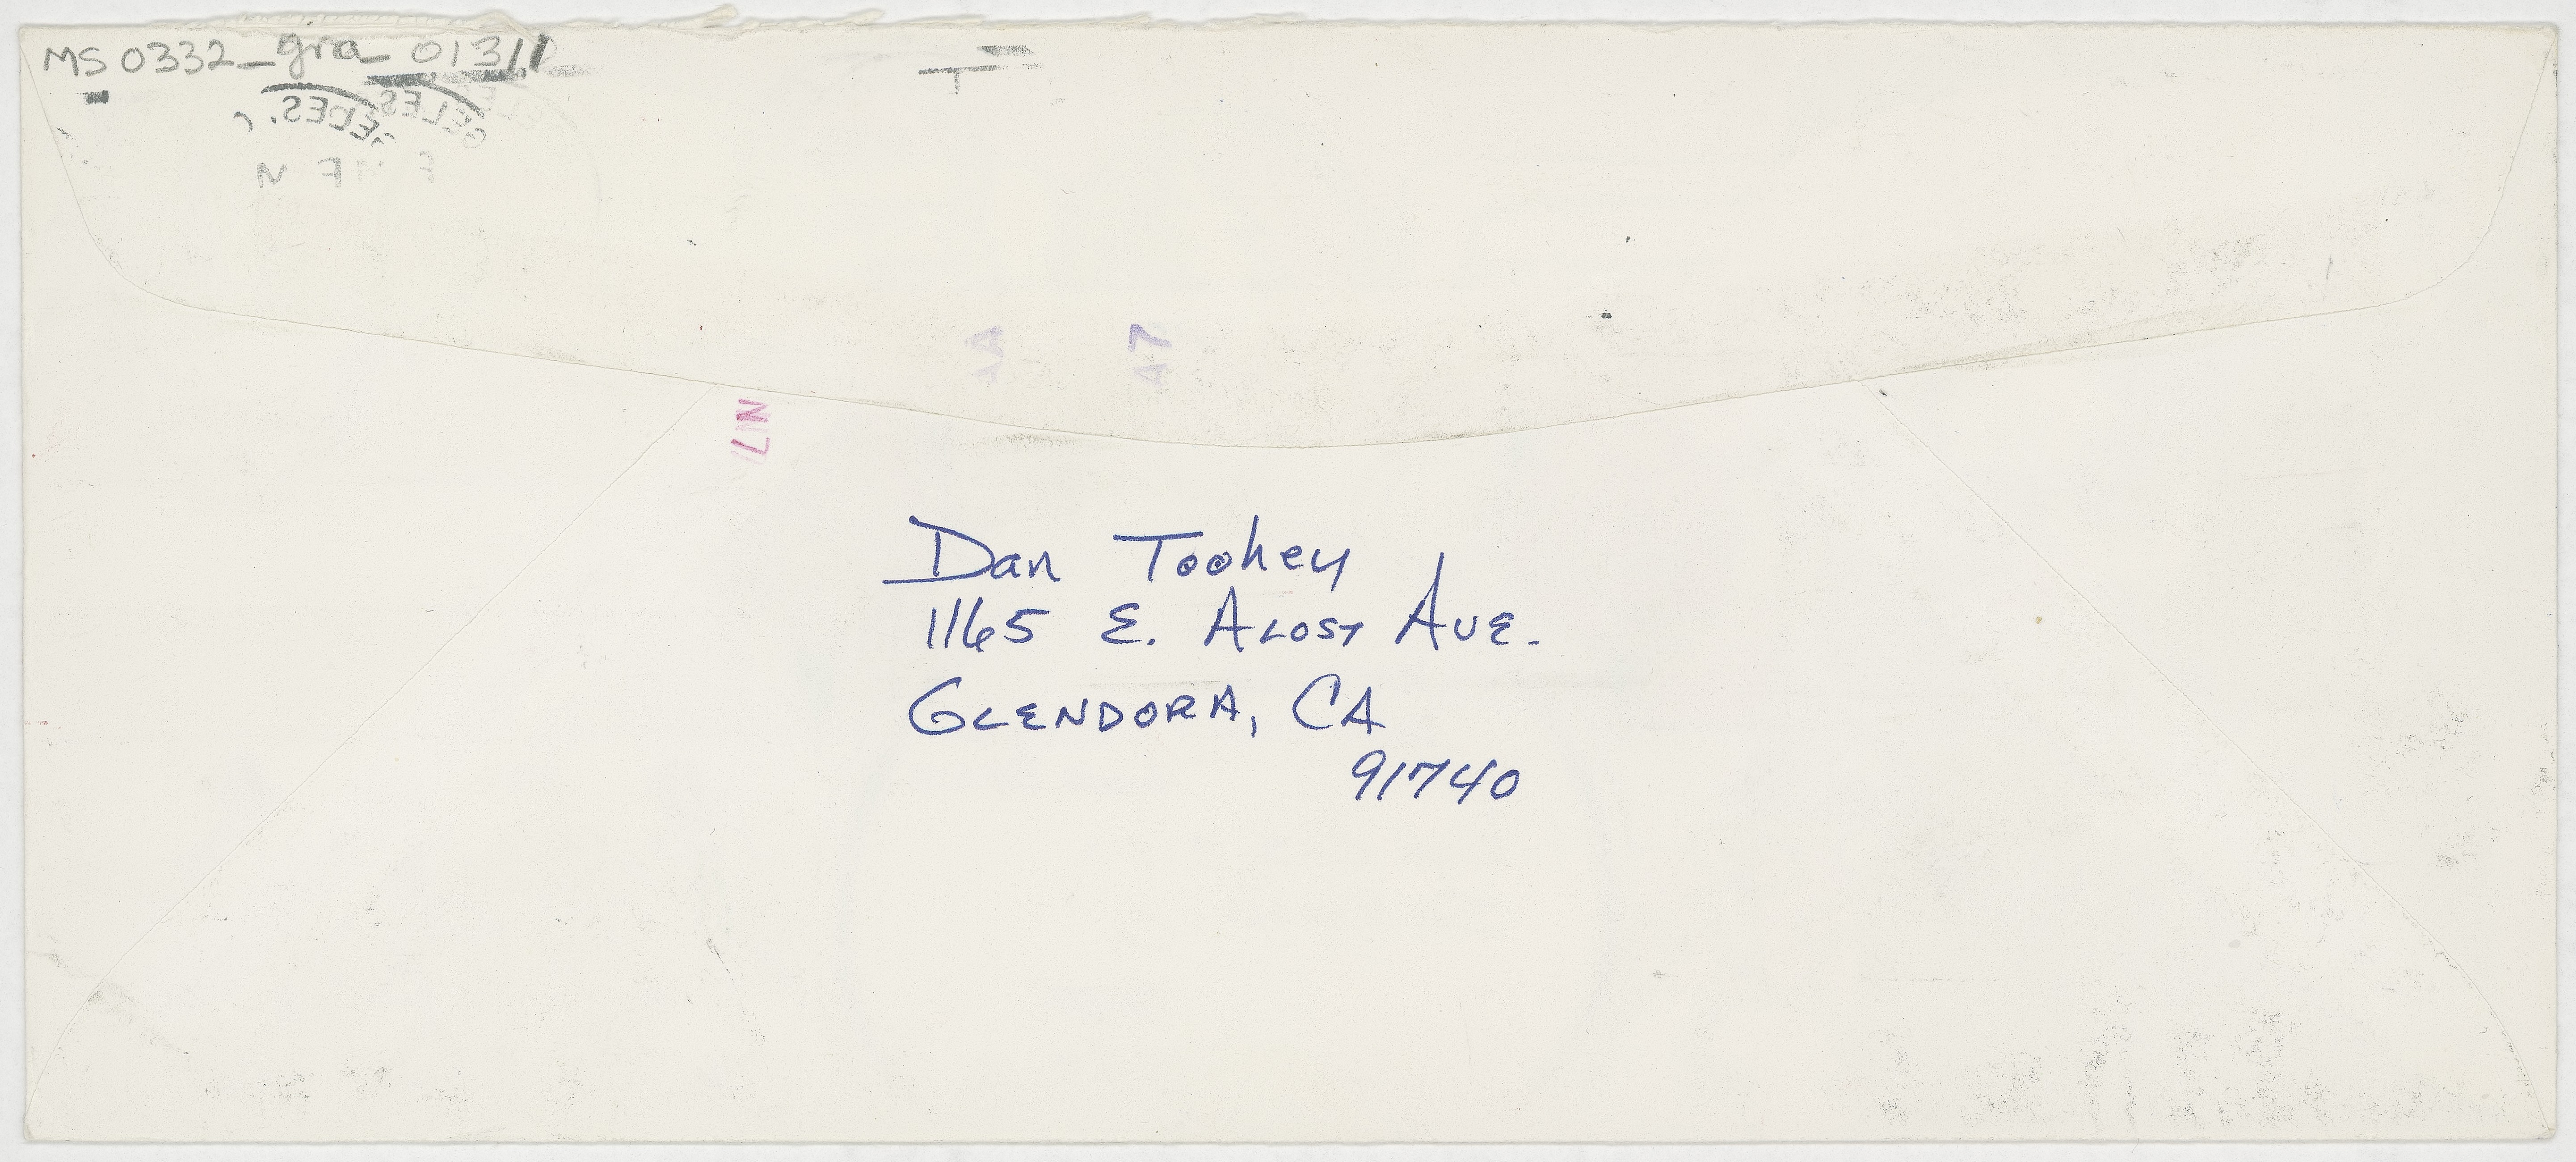 MS 0332_gra_01311
Dan Toohey
1165 E. Alost Ave.
GLENDORA, CA
91740